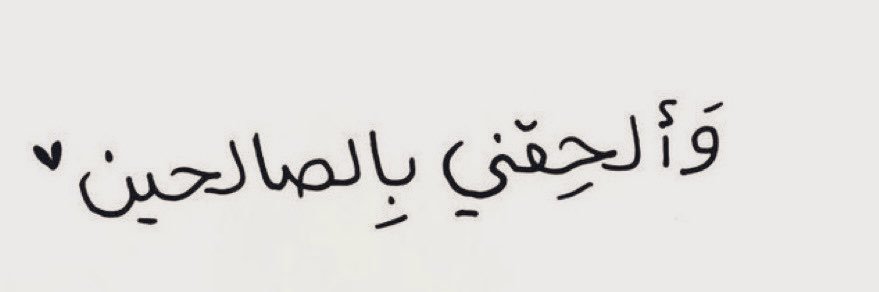 وَألحِقني بِالصالحين ♥